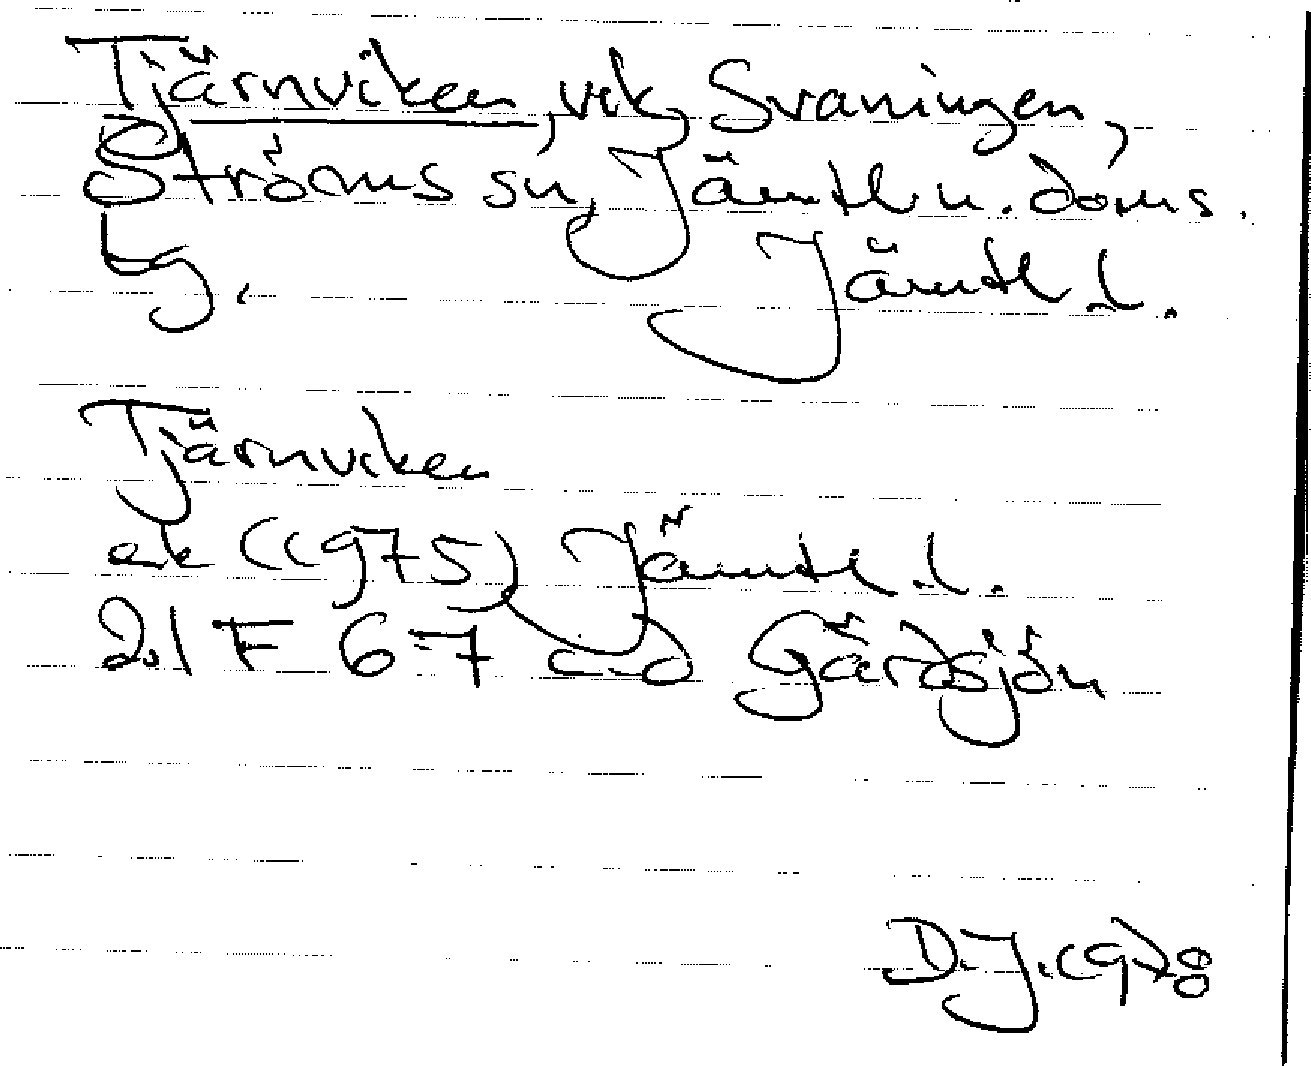 Tjärnviken, vik, Svaningen,
Ströms sn, Jämtl. n. doms.
g. Jämtl. l.
Tjärnviken
ek (1975) Jämtl. l.
21 F 6-7 c-d Gärdsjön
D.J. 1978